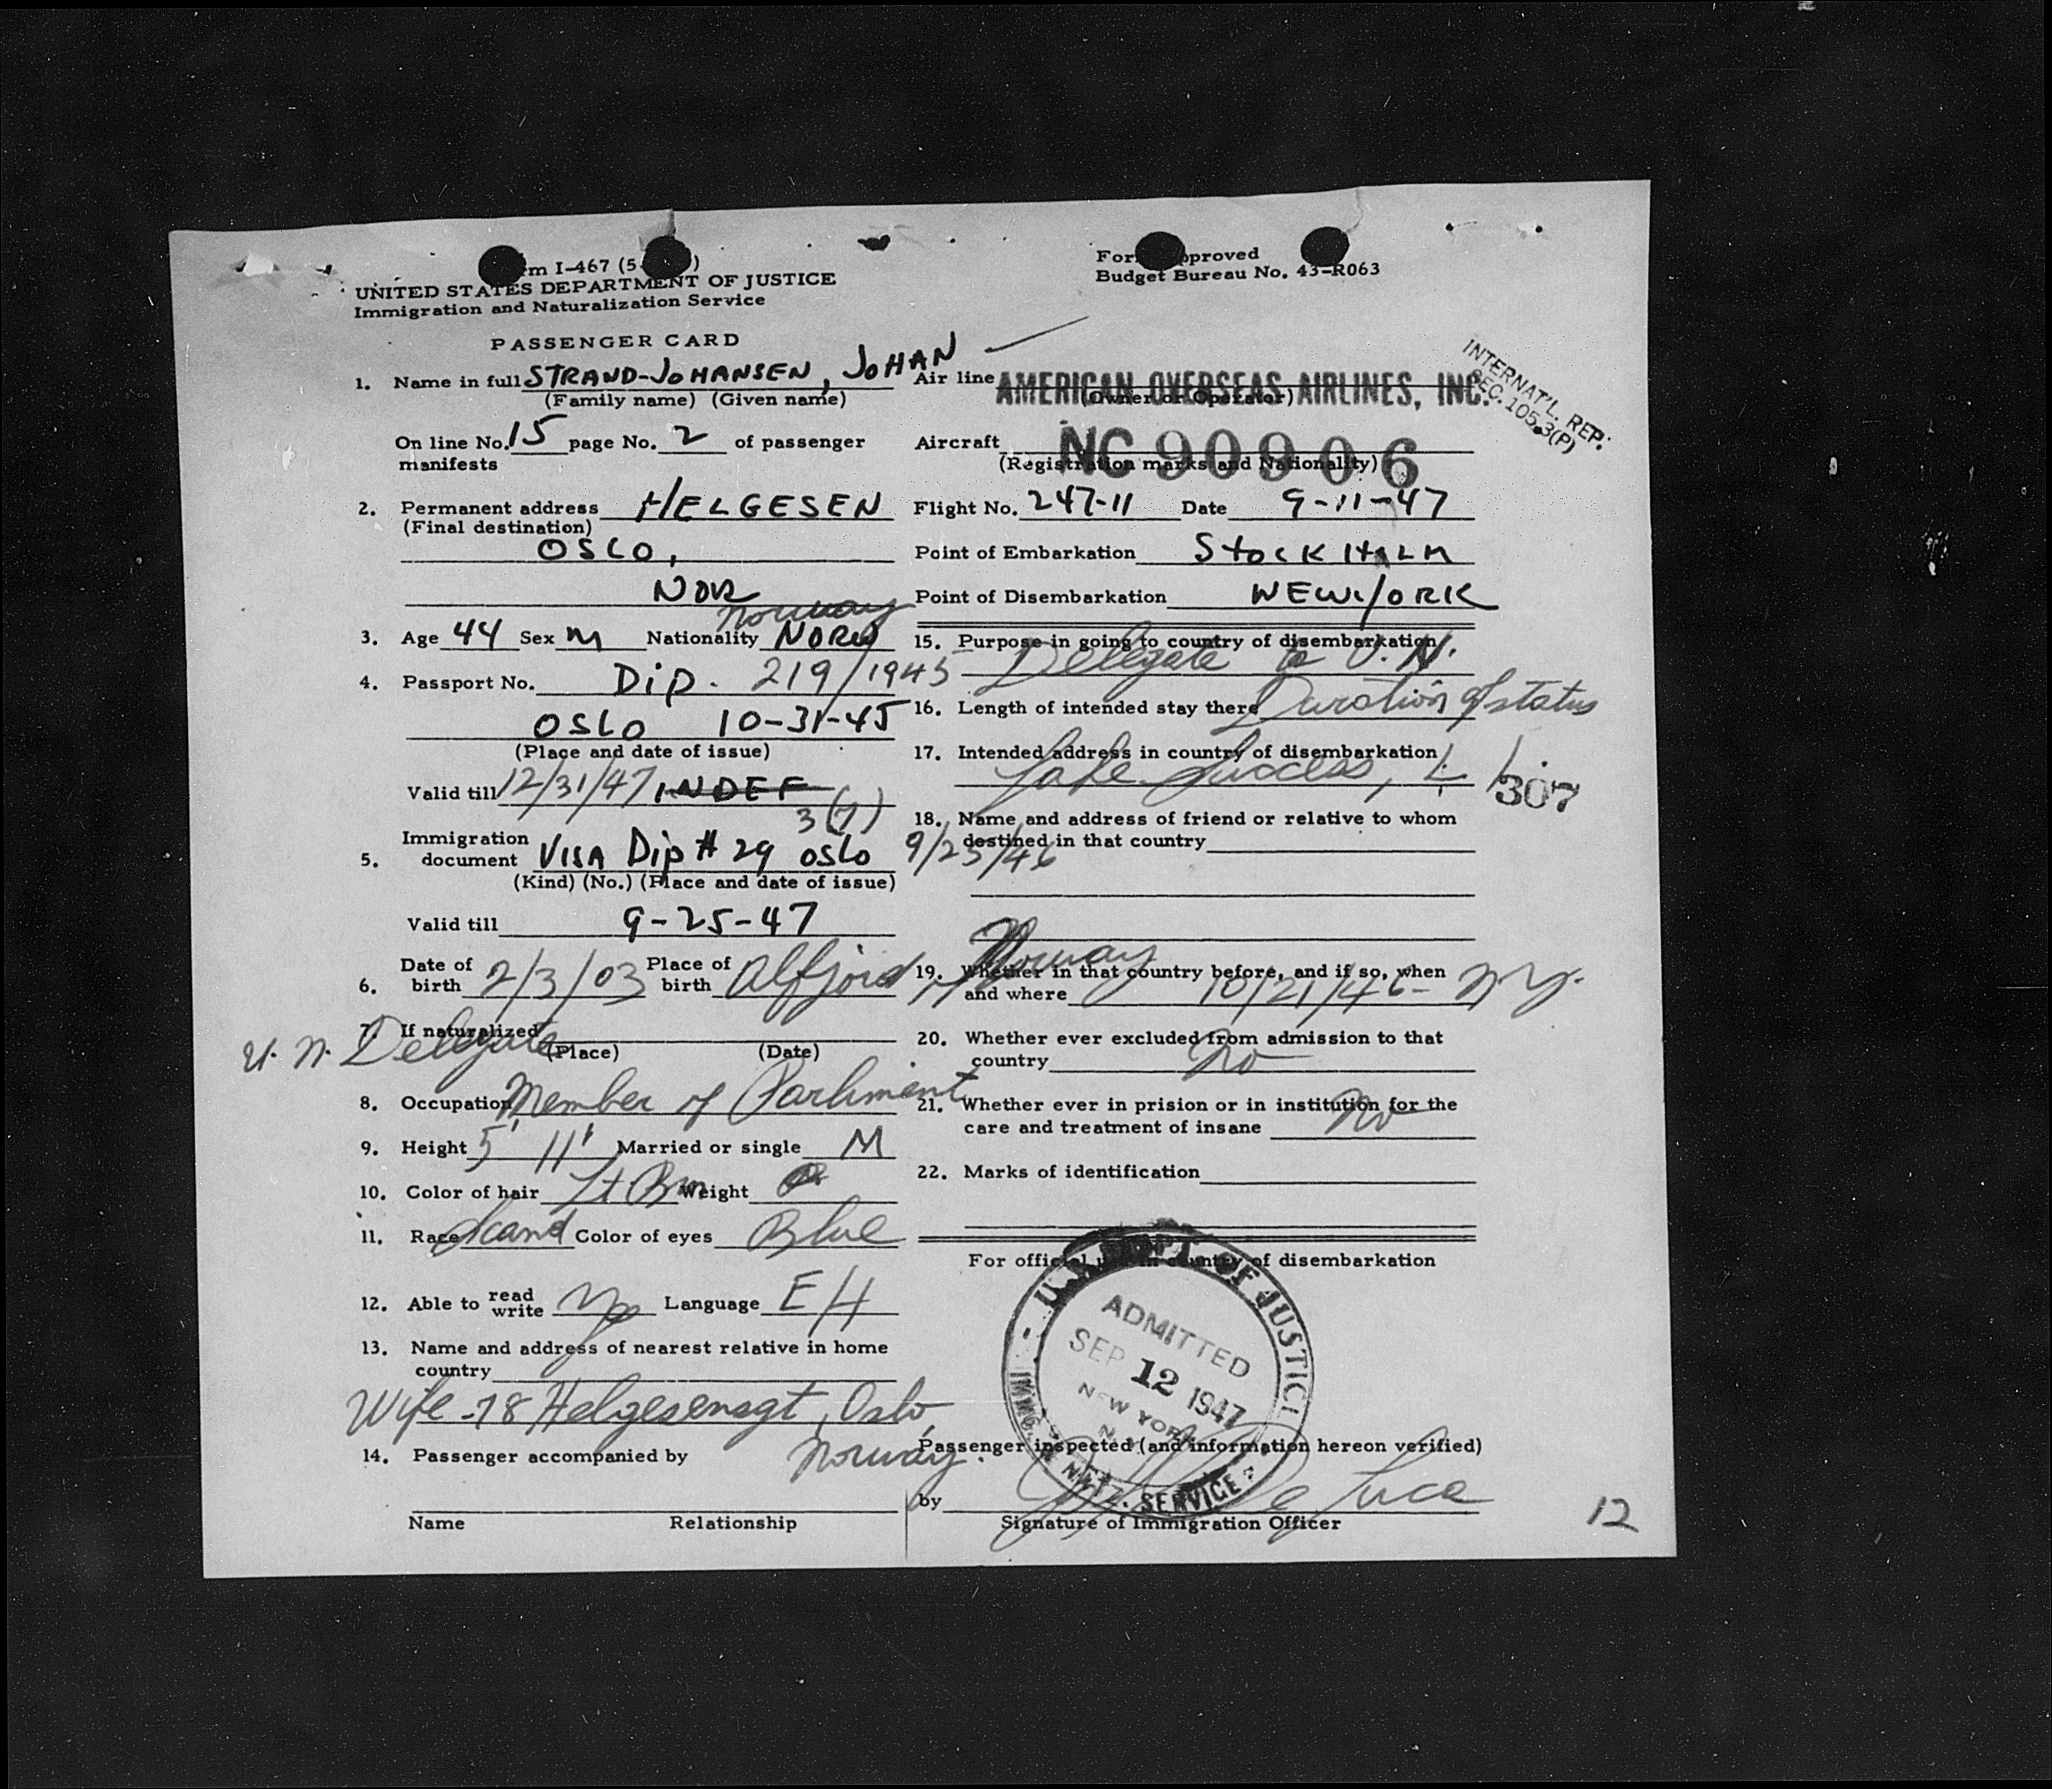 rm I-467 (5
UNITED STATES DEPARTMENT OF JUSTICE
Immigration and Naturalization Service
PASSENGER CARD
1. Name in full STRAND-JOHANSEN, JOHAN
(Family name) (Given name)
On line No. 15 page No. 2 of passenger
manifests
2. Permanent address HELGESEN
(Final destination)
OSLO,
NOR
Norway
3. Age 44 Sex M Nationality NORW
4. Passport No. Dip. 219/1945
OSLO 10-31-45
(Place and date of issue)
Valid till 12/31/47 INDEF
3(7)
5. Immigration document VISA Dip # 29 OSLO 9/25/46
(Kind) (No.) (Place and date of issue)
Valid till 9-25-47
6. Date of birth 2/3/03 Place of birth Alfjord, Norway
7. If naturalized
(Place) (Date)
U.N. Delegate
8. Occupation Member of Parliment
9. Height 5' 11" Married or single M
10. Color of hair Lt Brn Weight
11. Race Scand Color of eyes Blue
12. Able to read write Language E
13. Name and address of nearest relative in home
country
Wife - 78 Helgesensgt, Oslo,
Norway.
14. Passenger accompanied by
Name Relationship
For pproved
Budget Bureau No. 43-R063
Air line AMERICAN OVERSEAS AIRLINES, INC.
(Owner or Operator)
INTERNAT'L. REP.
SEC. 105.3(P)
Aircraft NC 90906
(Registration marks and Nationality)
Flight No. 247-11 Date 9-11-47
Point of Embarkation STOCKHOLM
Point of Disembarkation NEW YORK
15. Purpose in going to country of disembarkation
Delegate to U.N.
16. Length of intended stay there Duration of status
17. Intended address in country of disembarkation
Lake Success, L.I.
307
18. Name and address of friend or relative to whom
destined in that country
19. Whether in that country before, and if so, when
and where 10/21/46 - N.Y.
20. Whether ever excluded from admission to that
country No
21. Whether ever in prision or in institution for the
care and treatment of insane No
22. Marks of identification
For official use in country of disembarkation
U.S. DEPT. OF JUSTICE
ADMITTED
SEP 12 1947
NEW YORK
N.Y.
IMMIG. & NATZ. SERVICE
Passenger inspected (and information hereon verified)
by De Luca
Signature of Immigration Officer
12